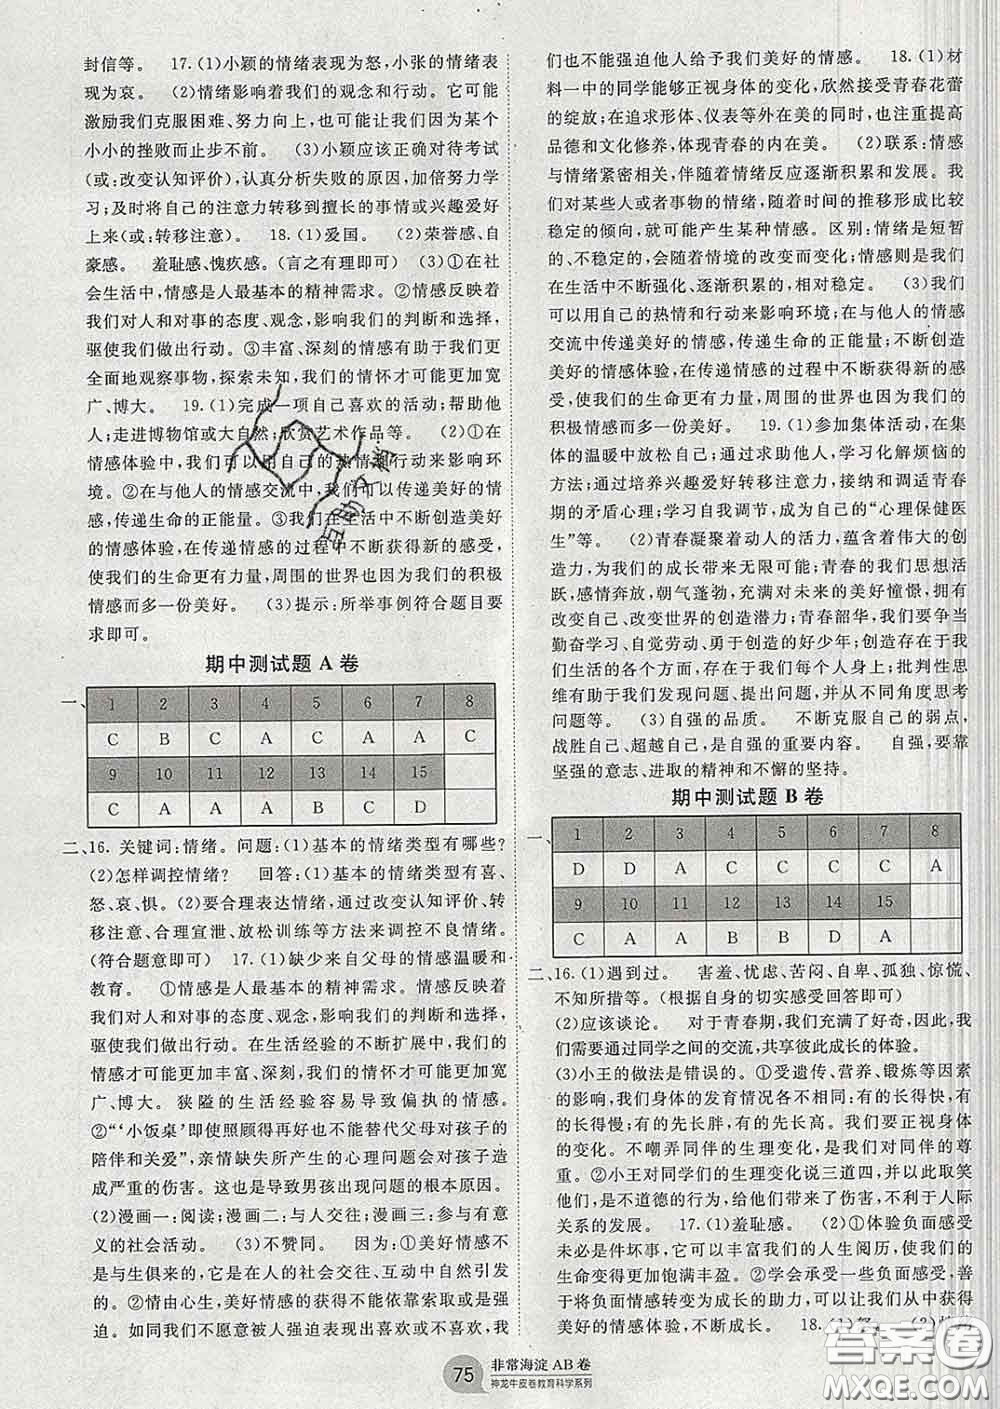 封信等。 17.(1)小颖的情绪表现为怒,小张的情绪表
现为哀。 (2)情绪影响着我们的观念和行动。它可能
激励我们克服困难、努力向上,也可能让我们因为某个
小小的挫败而止步不前。 (3)小颖应该正确对待考试
(或:改变认知评价),认真分析失败的原因,加倍努力学
习;及时将自己的注意力转移到擅长的事情或兴趣爱好
上来(或:转移注意)。 18.(1)爱国。 (2)荣誉感、自
豪感。 羞耻感、愧疚感。(言之有理即可) (3)①在社
会生活中,情感是人最基本的精神需求。②情感反映着
我们对人和对事的态度、观念,影响我们的判断和选择,
驱使我们做出行动。③丰富、深刻的情感有助于我们更
全面地观察事物,探索未知,我们的情怀才可能更加宽
广、博大。 19.(1)完成一项自己喜欢的活动;帮助他
人;走进博物馆或大自然;欣赏艺术作品等。 (2)①在
情感体验中,我们可以用自己的热情和行动来影响环
境。②在与他人的情感交流中,我们可以传递美好的情
感,传递生命的正能量。③我们在生活中不断创造美好的
情感体验,在传递情感的过程中不断获得新的感受,
使我们的生命更有力量,周围的世界也因为我们的积极
情感而多一份美好。 (3)提示:所举事例符合题目要
求即可。
期中测试题 A 卷
一、 1 2 3 4 5 6 7 8
C B C A C A A C
9 10 11 12 13 14 15
C A A A B C D
二、16. 关键词:情绪。问题:(1)基本的情绪类型有哪些?
(2)怎样调控情绪? 回答:(1)基本的情绪类型有喜、
怒、哀、惧。(2)要合理表达情绪,通过改变认知评价、转
移注意、合理宣泄、放松训练等方法来调控不良情绪。
(符合题意即可) 17.(1)缺少来自父母的情感温暖和
教育。 ①情感是人最基本的精神需求。情感反映着
我们对人和对事的态度、观念,影响我们的判断和选择,
驱使我们做出行动。在生活经验的不断扩展中,我们的
情感才可能更加丰富、深刻,我们的情怀才可能更加宽
广、博大。狭隘的生活经验容易导致偏执的情感。
②“‘小饭桌’即使照顾得再好也不能替代父母对孩子的
陪伴和关爱”,亲情缺失所产生的心理问题会对孩子造
成严重的伤害。这也是导致男孩出现问题的根本原因。
(2)漫画一:阅读;漫画二:与人交往;漫画三:参与有意
义的社会活动。 (3)不赞同。 因为:①美好情感不是
与生俱来的,它是在人的社会交往、互动中自然引发
的。②情由心生,美好情感的获得不能依靠索取或是强
迫。如同我们不愿意被人强迫表现出喜欢或不喜欢,我
们也不能强迫他人给予我们美好的情感。 18.(1)材
料一中的同学能够正视身体的变化,欣然接受青春花蕾
的绽放;在追求形体、仪表等外在美的同时,也注重提高
品德和文化修养,体现青春的内在美。 (2)联系:情感
与情绪紧密相关,伴随着情绪反应逐渐积累和发展。我
们对某些人或者事物的情绪,随着时间的推移形成比较
稳定的倾向,就可能产生某种情感。区别:情绪是短暂
的、不稳定的,会随着情境的改变而变化;情感则是我们
在生活中不断强化、逐渐积累的,相对稳定。 (3)我们
可以用自己的热情和行动来影响环境;在与他人的情感
交流中传递美好的情感,传递生命的正能量;不断创造
美好的情感体验,在传递情感的过程中不断获得新的感
受,使我们的生命更有力量,周围的世界也因为我们的
积极情感而多一份美好。 19.(1)参加集体活动,在集
体的温暖中放松自己;通过求助他人,学习化解烦恼的方
法;通过培养兴趣爱好转移注意,接纳和调适青春
期的矛盾心理;学习自我调节,成为自己的“心理保健医
生”等。 (2)青春凝聚着动人的活力,蕴含着伟大的创
造力,为我们的成长带来无限可能;青春的我们思想活
跃,感情奔放,朝气蓬勃,充满对未来的美好憧憬,具有
改变自己、改变世界的创造潜力;青春韶华,我们要争当
勤奋学习、自觉劳动、勇于创造的好少年;创造存在于我
们生活的各个领域,存在于我们每个人身上;批判性思
维有助于我们发现问题、提出问题,并从不同角度思考
问题等。 (3)自强的品质。 不断克服自己的弱点,
战胜自己、超越自己,是自强的重要内容。 自强,要靠
坚强的意志、进取的精神和不懈的坚持。
期中测试题 B 卷
一、 1 2 3 4 5 6 7 8
D D A C C C C A
9 10 11 12 13 14 15
C A A B B D A
二、16.(1)遇到过。 害羞、忧虑、苦闷、自卑、孤独、惊慌、
不知所措等。(根据自身的切实感受回答即可)
(2)应该谈论。 对于青春期,我们充满了好奇,因此,我
们需要通过同学之间的交流,共享彼此成长的体验。
(3)小王的做法是错误的。①受遗传、营养、锻炼等因素
的影响,我们身体的发育情况各不相同:有的长得快,有
的长得慢;有的先长胖,有的先长高。我们要正视身体
的变化。不嘲弄同伴的生理变化,是我们对同伴的尊
重。②小王对同学们的生理变化说三道四,并以此取笑
他们,是不道德的行为,给他们带来了伤害,不利于人际
关系的发展。 17.(1)羞耻感。 (2)①体验负面感受
未必是件坏事,它可以丰富我们的人生阅历,使我们的
生命变得更加饱满丰盈。②学会承受一些负面感受,善
于将负面情感转变为成长的助力,可以让我们从中获得
美好的情感体验,不断成长。 18.(1)怒。 (2)
75 非常海淀 AB 卷
神龙牛皮卷教育科学系列
答案圈
MXQE.COM